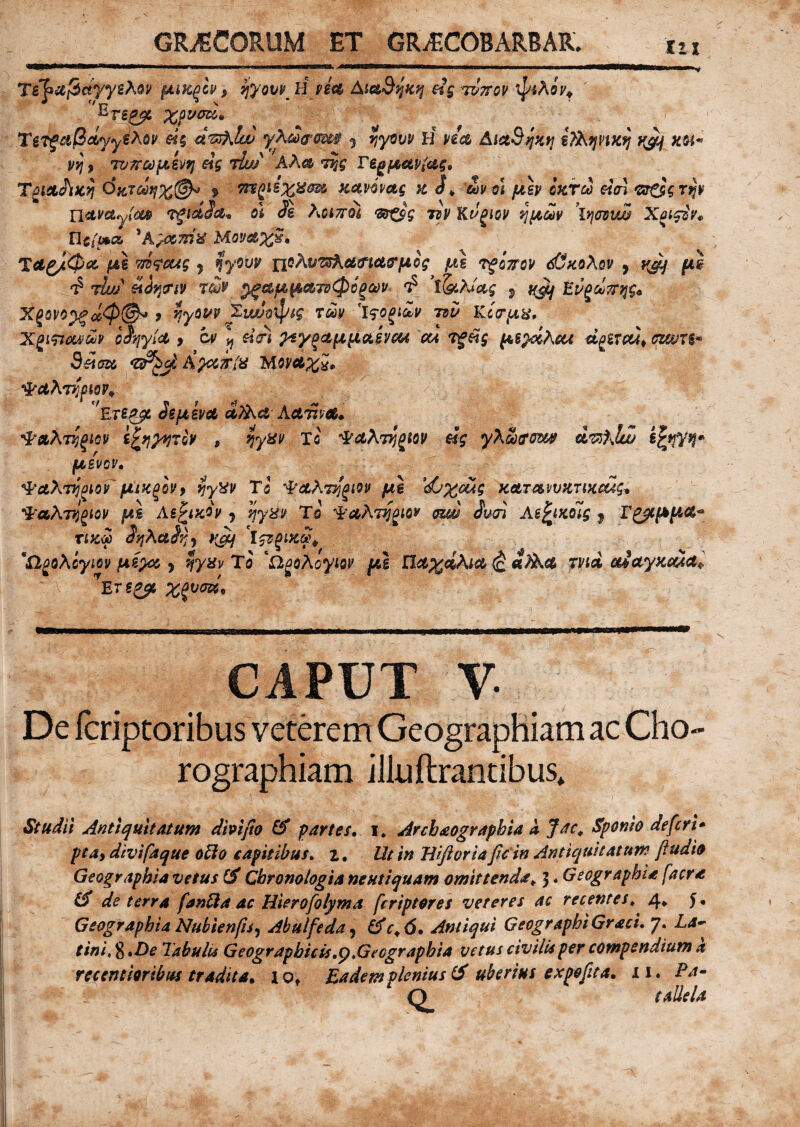 GRÆCORUM ET GRÆCOBARBAR. 121
Τετραβάγγελον μικρὸν, ἤγουν Ἡ νέα Διαθήκη εἰς τύπον ψιλόν.
Ἕτερα χρυσᾶ.
Τετραβάγγελον εἰς ἁπλὴν γλῶσσαν, ἤγουν Ἡ νέα Διαθήκη ἑλληνικὴ καὶ κοι-
νὴ, τυπωμένη εἰς τὴν Ἄλα τῆς Γερμανίας.
Τριαδικὴ Ὀκτώηχος, περιέχουσα κανόνας κδ. ὧν οἱ μὲν ὀκτώ εἰσι πρὸς τὴν
Παναγίαν τριάδα. οἱ δὲ λοιποὶ πρὸς τὸν Κύριον ἡμῶν Ἰησοῦν Χριστόν.
Ποίημα Ἀγαπίου Μοναχοῦ.
Ταρίφα μὲ πόσταις, ἤγουν Πολυπλασιασμὸς μὲ τρόπον εὔκολον, καὶ μὲ
τὴν εἴδησιν τῶν γραμματοφόρων τῆς Ἰταλίας, καὶ Εὐρώπης.
Χρονογράφος, ἤγουν Σύνοψις τῶν Ἱστοριῶν τοῦ Κόσμου.
Χριστιανῶν ὁδηγία, ἐν ᾗ εἰσὶ γεγραμμέναι αἱ τρεῖς μεγάλαι ἀρεταί, συντε-
θεῖσα παρὰ Ἀγαπίου Μοναχοῦ.
Ψαλτήριον.
Ἕτερα δεμένα ἀλλὰ Λατῖνα.
Ψαλτήριον ἐξηγητὸν, ἤγουν Τὸ Ψαλτήριον εἰς γλῶσσαν ἁπλὴν ἐξηγη-
μένον.
Ψαλτήριον μικρὸν, ἤγουν Τὸ Ψαλτήριον μὲ εὐχαῖς κατανυκτικαῖς.
Ψαλτήριον μὲ Λεξικὸν, ἤγουν Τὸ Ψαλτήριον σὺν δυσὶ Λεξικοῖς, Γραμμα-
τικῷ δηλαδὴ, καὶ Ἱστορικῷ.
Ὡρολόγιον μέγα, ἤγουν Τὸ Ὡρολόγιον μὲ Πασχάλια καὶ ἄλλα τινὰ ἀναγκαῖα.
Ἕτερα χρυσᾶ.
CAPUT V.
De scriptoribus veterem Geographiam ac Cho-
rographiam illustrantibus.
Studii Antiquitatum divisio & partes. 1. Archæographia à Jac. Sponio descri-
pta, divisaque octo capitibus. 2. Ut in Historia sic in Antiquitatum studio
Geographia vetus & Chronologia neutiquam omittenda. 3. Geographiæ sacræ
& de terra sancta ac Hierosolyma scriptores veteres ac recentes. 4. 5.
Geographia Nubiensis, Abulfeda, &c. 6. Antiqui Geographi Græci. 7. La-
tini. 8. De Tabulis Geographicis. 9. Geographia vetus civilis per compendium à
recentioribus tradita. 10. Eadem plenius & uberius exposita. 11. Pa-
Q rallela